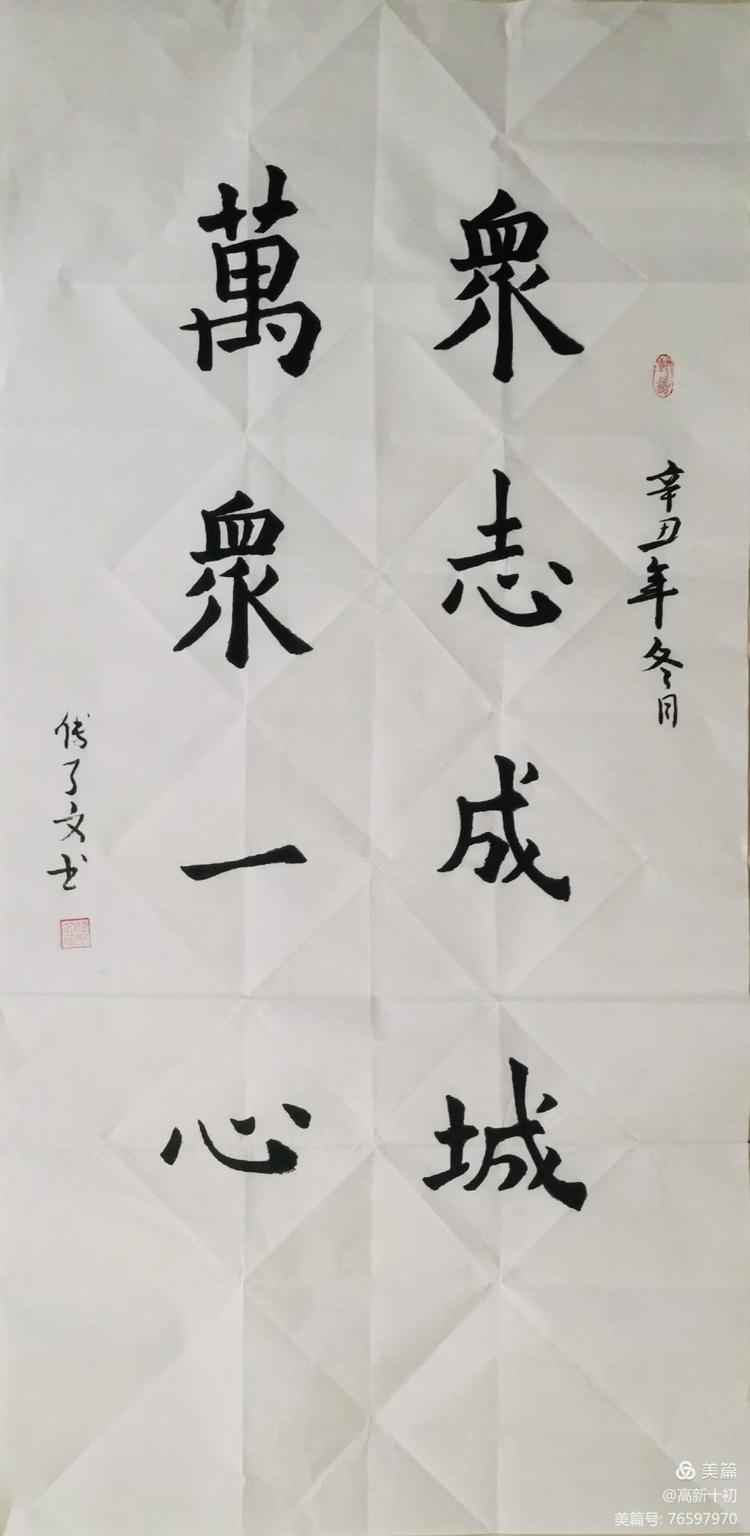 辛丑年冬月
眾志成城
萬眾一心
傅了文书
美篇
@高新十初
美篇号: 76597970